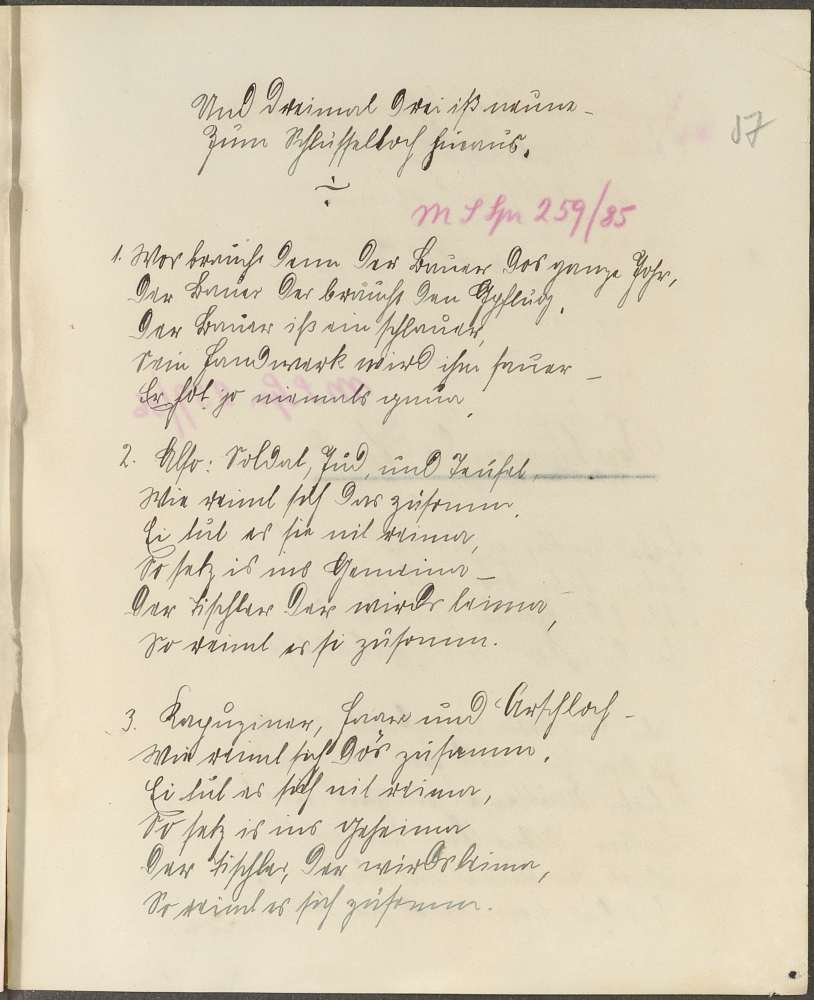 Und dreimal drei iß neune –
Zum Schlüsselloch hinaus.
57
M S Spr 259/85
1. Wos braucht denn der Bauer dos ganze Johr,
Der Bauer der braucht den Gpflug,
Der Bauer iß ein schlauer,
Sein Handwerk wird ihm sauer –
Er hot jo niemals gnua,
2. Also: Soldat, Jud, und Teufel,
Wie reimt sich das zusomm,
Ei tut es sie nit reima,
So setz is ins Gemeina –
Der Tischler der wirds leima,
So reimt es si zusomm.
3. Kapuziner, Haare und Arschloch –
Wie reimt sich dös zusamm,
Ei tut es sich nit reima,
So setz is ins Geheima
Der Tischler, der wirds leima,
So reimt es sich zusomm.